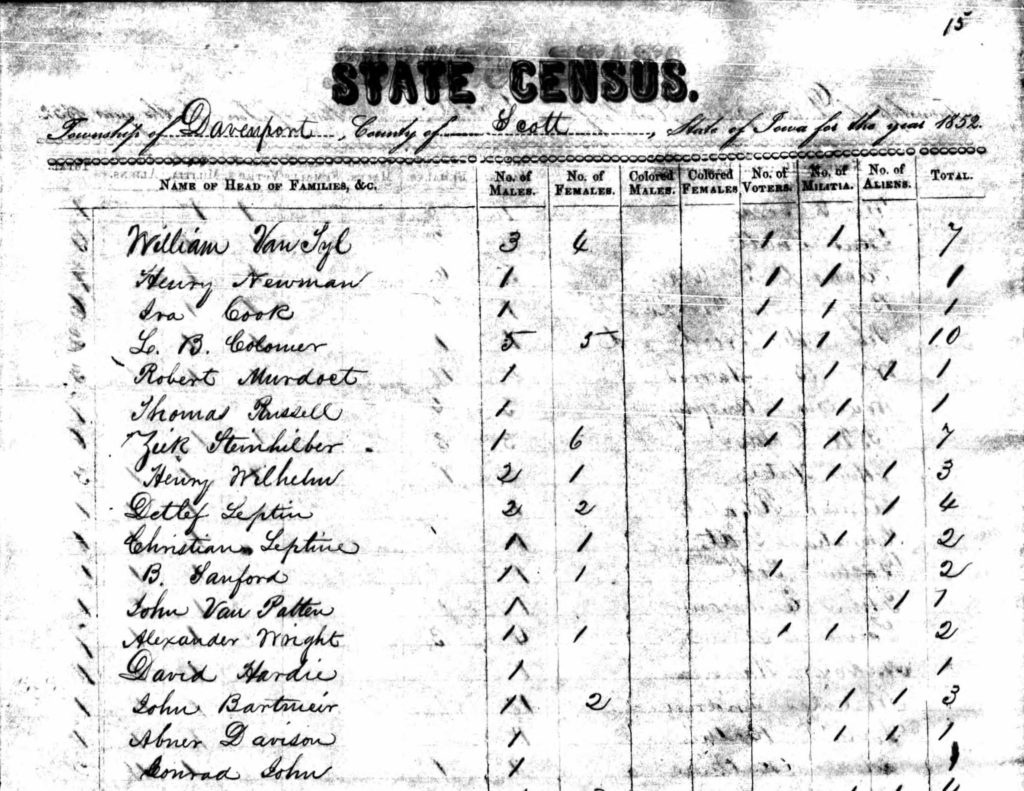 15
STATE CENSUS.
Township of Davenport, County of Scott, State of Iowa for the year 1852.
NAME OF HEAD OF FAMILIES, &C. No. of MALES. No. of FEMALES. Colored MALES. Colored FEMALES No. of VOTERS. No. of MILITIA. No. of ALIENS. TOTAL.
William Van Tyl 3 4 1 1 7
Henry Newman 1 1 1 1
Ira Cook 1 1 1 1
L. B. Colomer 5 5 1 1 10
Robert Murdoct 1 1 1 1
Thomas Russell 1 1 1 1
Zeik Steinhilber 1 6 1 1 7
Henry Wilhelm 2 1 1 1 3
Detlef Leptin 2 2 1 4
Christian Leptine 1 1 1 1 2
B. Sanford 1 1 1 2
John Van Patten 1 1 1
Alexander Wright 1 1 1 1 2
David Hardie 1 1
John Bartmeir 1 2 1 1 3
Abner Davison 1 1 1 1
Conrad John 1 1